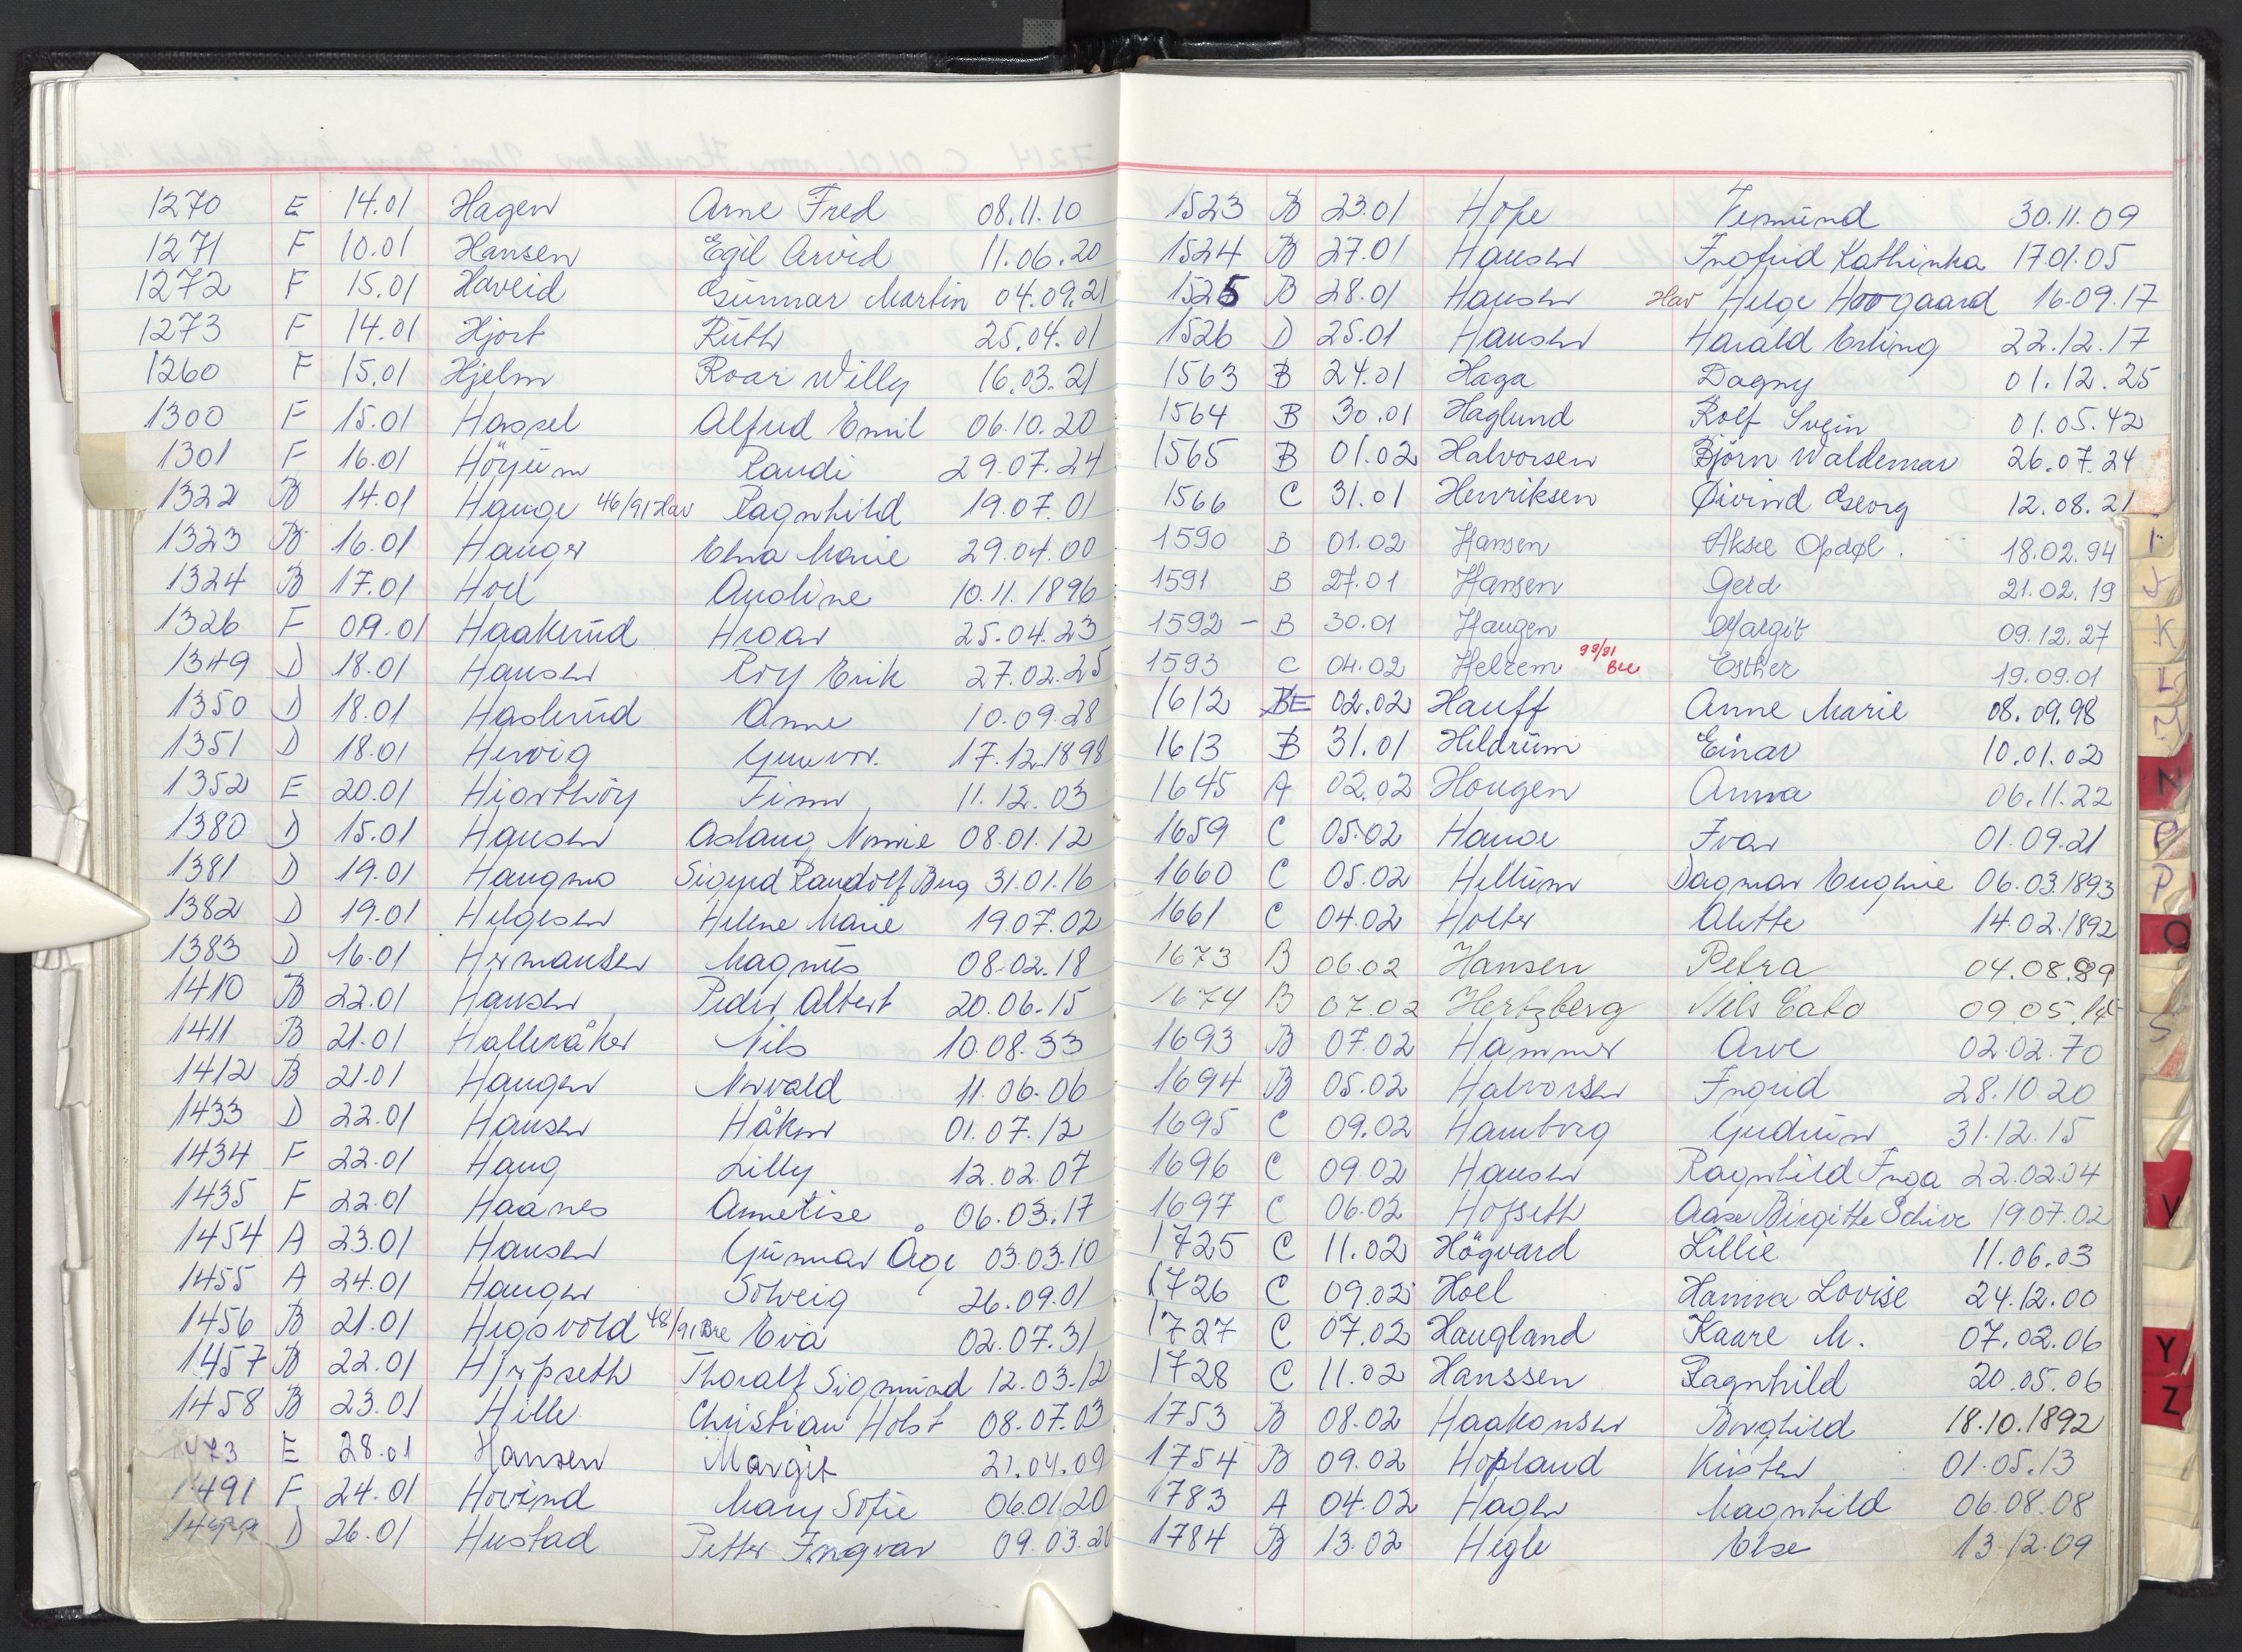 1270 E 14.01 Hagen Arne Fred 08.11.10
1271 F 10.01 Hansen Egil Arvid 11.06.20
1272 F 15.01 Haveid Gunnar Martin 04.09.21
1273 F 14.01 Hjort Ruth 25.04.01
1260 F 15.01 Hjelm Roar Willy 16.03.21
1300 F 15.01 Hassel Alfred Emil 06.10.20
1301 F 16.01 Höyum Randi 29.07.24
1322 B 14.01 Hauge 46/91 Hav Ragnhild 19.07.01
1323 B 16.01 Hauger Elna Marie 29.04.00
1324 B 17.01 Hoel Anoline 10.11.1896
1326 F 09.01 Haakerud Hroar 25.04.23
1349 D 18.01 Hansen Roy Erik 27.02.25
1350 D 18.01 Haslerud Anne 10.09.28
1351 D 18.01 Hervig Gunvor. 17.12.1898
1352 E 20.01 Hiorthöy Finn 11.12.03
1380 D 15.01 Hansen Aslaug Nomie 08.01.12
1381 D 19.01 Haugmo Sigurd Randolf Berg 31.01.16
1382 D 19.01 Helgesen Helene Marie 19.07.02
1383 D 16.01 Hermansen Magnus 08.02.18
1410 B 22.01 Hansen Peder Albert 20.06.15
1411 B 21.01 Halleråker Nils 10.08.33
1412 B 21.01 Haugen Norvald 11.06.06
1433 D 22.01 Hansen Håkon 01.07.12
1434 F 22.01 Haug Lilly 12.02.07
1435 F 22.01 Haanes Annelise 06.03.17
1454 A 23.01 Hansen Gunnar Åge 03.03.10
1455 A 24.01 Haugen Solveig 26.09.01
1456 B 21.01 Hegsvold 48/91 Bre Eva 02.07.31
1457 B 22.01 Hjrpseth Thoralf Sigmund 12.03.12
1458 B 23.01 Hille Christian Holst 08.07.03
1473 E 28.01 Hansen Margit 21.04.09
1491 F 24.01 Hovind Mary Sofie 06.01.20
D 26.01 Hustad Petter Ingvar 09.03.20
1523 B 23.01 Hope Vemund 30.11.09
1524 B 27.01 Hansen Ingfrid Kathinka 17.01.05
1525 B 28.01 Hansen Hav Helge Hovgaard 16.09.17
1526 D 25.01 Hansen Harald Erling 22.12.17
1563 B 24.01 Haga Dagny 01.12.25
1564 B 30.01 Haglund Rolf Svein 01.05.42
1565 B 01.02 Halvorsen Björn Waldemar 26.07.24
1566 C 31.01 Henriksen Øivind Georg 12.08.21
1590 B 01.02 Hansen Aksel Opdøl. 18.02.94
1591 B 27.01 Hansen Gerd 21.02.19
1592 - B 30.01 Haugen Margit 09.12.27
1593 C 04.02 Helzem 99/91 Bre Esther 19.09.01
1612 BE 02.02 Hauff Anne Marie 08.09.98
1613 B 31.01 Hildrum Einar 10.01.02
1645 A 02.02 Hougen Anna 06.11.22
1659 C 05.02 Hauge Ivar 01.09.21
1660 C 05.02 Hellum Dagmar Eugenie 06.03.1893
1661 C 04.02 Holter Alette 14.02.1892
1673 B 06.02 Hansen Petra 04.08.89
1674 B 07.02 Hertzberg Nils Cato 09.05.14
1693 B 07.02 Hammer Arve 02.02.70
1694 B 05.02 Halvorsen Ingrid 28.10.20
1695 C 09.02 Hamborg Gudrun 31.12.15
1696 C 09.02 Hansen Ragnhild Inga 22.02.04
1697 C 06.02 Hofseth Aase Birgitte Schive 19.07.02
1725 C 11.02 Högvard Lillie 11.06.03
1726 C 09.02 Hoel Hanna Lovise 24.12.00
1727 C 07.02 Haugland Kaare M. 07.02.06
1728 C 11.02 Hanssen Ragnhild 20.05.06
1753 B 08.02 Haakonsen Borghild 18.10.1892
1754 B 09.02 Hopland Kirsten 01.05.13
1783 A 04.02 Hagen Magnhild 06.08.08
1784 B 13.02 Hegle Else 13.12.09
I
J
K
L
M
N
O
P
Q
S
V
Y
Z